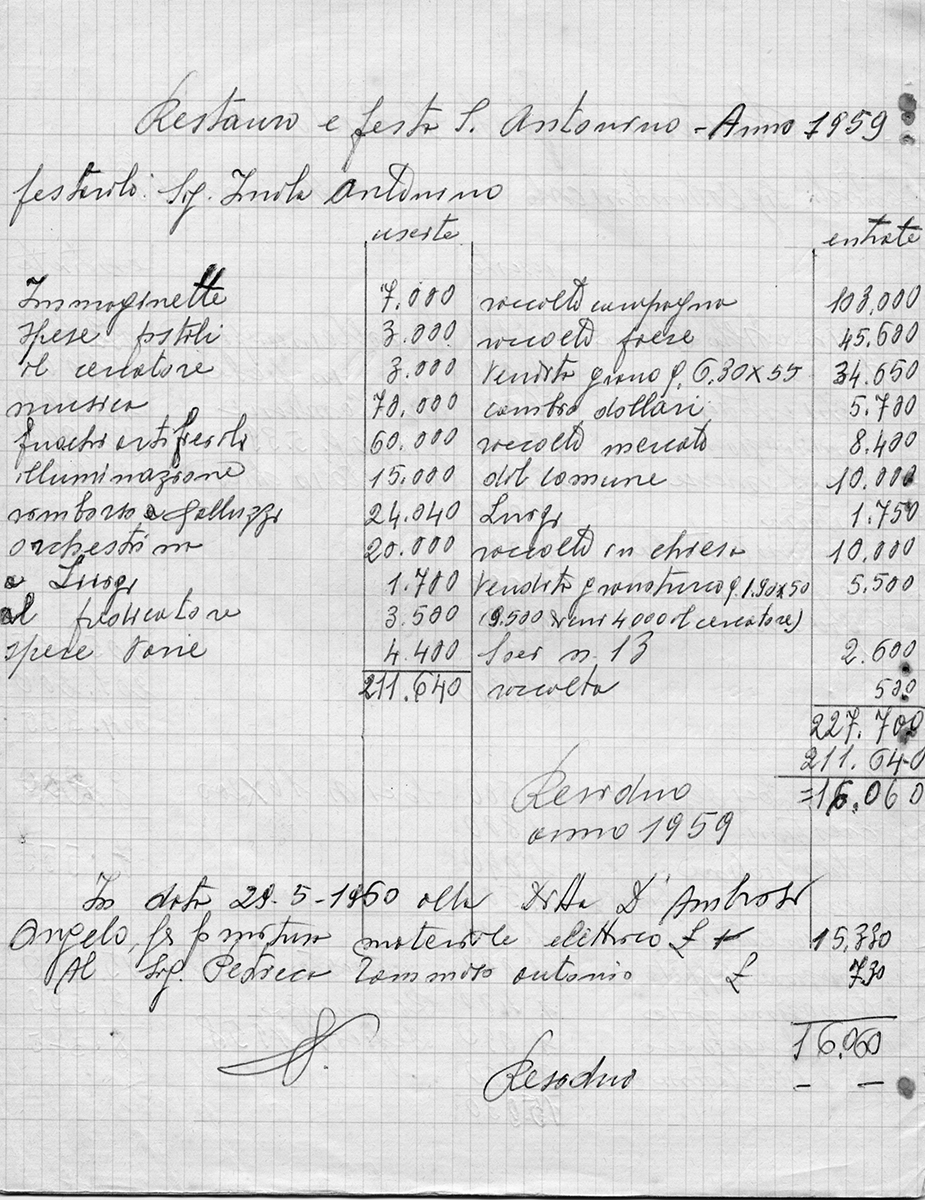 Restauro e festa S. Antonino - Anno 1959
festarolo: Sig. Imola Antonino
uscite entrate
Immaginette 7.000 raccolta campagna 103,000
spese postali 3.000 raccolta paese 45.600
il cercatore 3.000 Vendita grano q. 6,30x55 34.650
musica 70.000 cambio dollari 5.700
fuochi artificiali 60.000 raccolta mercato 8.400
illuminazione 15.000 dal comune 10.000
rimborso a Galluzzi 24.040 Luigi 1.750
orchestrina 20.000 raccolta in chiesa 10,000
a Luigi 1.700 Vendita granoturco q. 1.90x50 5.500
al predicatore 3.500 (9.500 meno 4000 il cercatore)
spese varie 4.400 Soci n. 13 2.600
211.640 raccolta 500
227.700
211.640
Residuo =16.060
anno 1959
In data 29-5-1960 alla Ditta D'Ambrosi
Angelo, per fornitura materiale elettrico £ 15,330
Al Sig. Pedreca Tommaso Antonio £ 730
16.060
Residuo - -